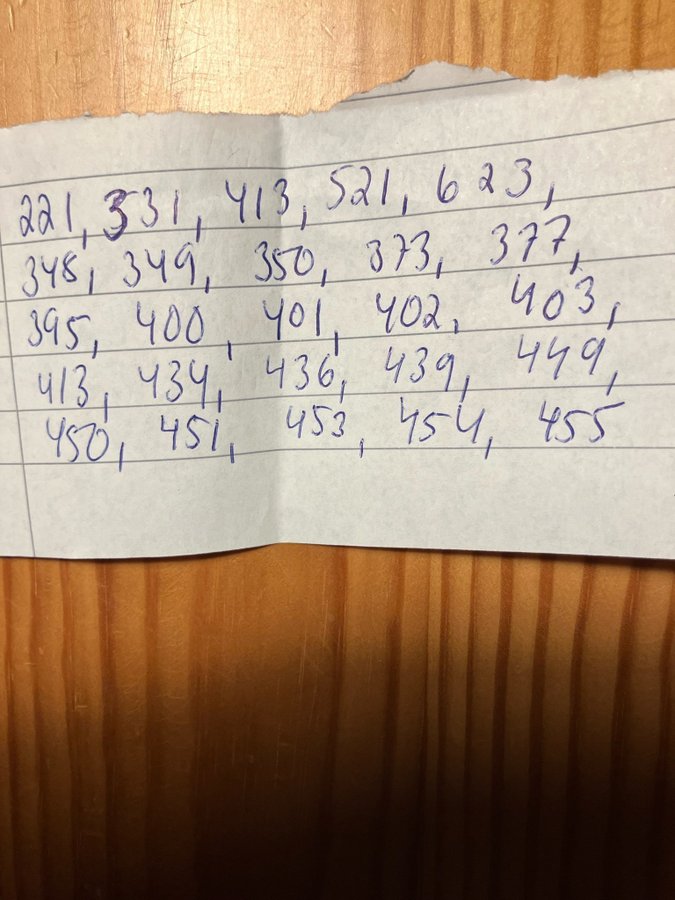 221, 331, 413, 521, 623,
348, 349, 350, 373, 377,
395, 400, 401, 402, 403,
413, 434, 436, 439, 449,
450, 451, 453, 454, 455